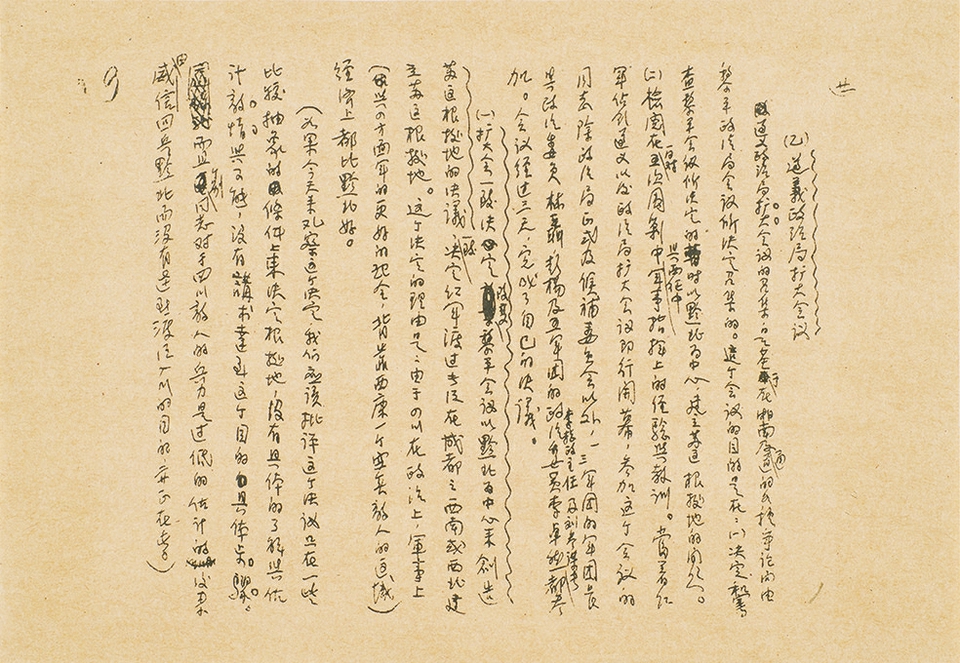 廿
（乙）遵义政治局扩大会议
遵义政治局扩大会议的召集是基于在湘南及通道的各种争论而由
黎平政治局会议所决定召集的。这个会议的目的是在：（一）决定和审
查黎平会议所决定的暂时以黔北为中心，建立苏区根据地的问题。
（二）检阅在反对五次围剿中与西征中军事指挥上的经验与教训。当着红
军占领遵义以后政治局扩大会议即行开幕，参加这个会议的
同志除政治局正式及候补委员会以外，一三军团的军团长
与政治委员林聂彭杨及五军团的政治委员李卓然李总政主任及刘参谋长都参
加。会议经过三天，完成了自己的决议。
（一）扩大会一致决定改变黎平会议以黔北为中心来创造
苏区根据地的决议，一致决定红军渡过长江在成都之西南或西北建
立苏区根据地。这个决定的理由是：由于四川在政治上，军事上
（与四方面军的更好的配合，背靠西康一个空无敌人的区域）
经济上都比黔北好。
（如果今天来观察这个决定，我们应该批评这个决议只在一些
比较抽象的条件上来决定根据地，没有具体的了解与估
计敌情与可能，没有讲求达到这个目的的具体步骤。
而且个别同志对于四川敌人的兵力是过低的估计的，后来
由威信回兵黔北而没有达到渡江入川的目的，亦正在此）